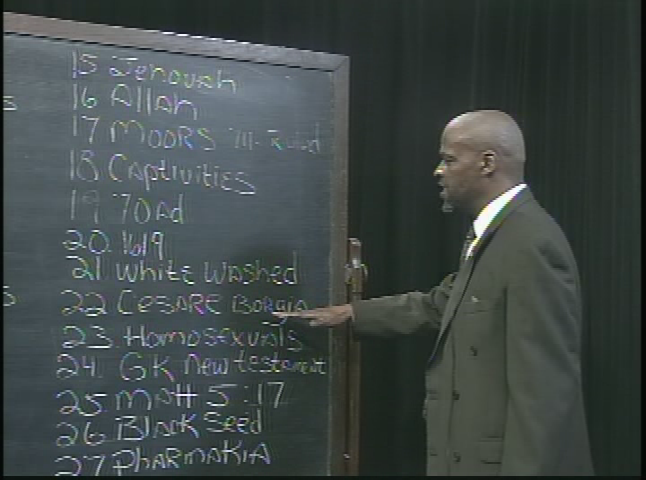 15 Jehovah
16 Allah
17 MOORS
18 Captivities
19 70 Ad
20. 1619
21 White Washed
22 CESARE BORgia
23 Homosexuals
24. GK New testament
25 MAtt 5:17
26 Black Seed
27 PhARMAKIA